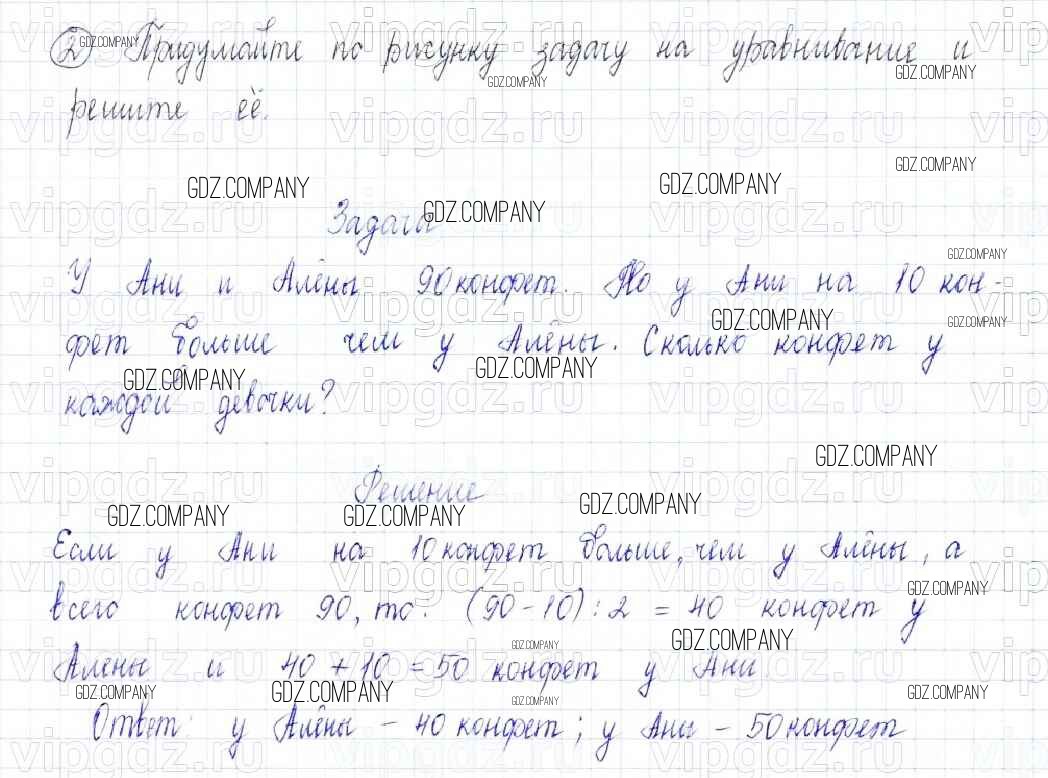 2 Придумайте по рисунку задачу на уравнивание и
решите её.
Задача
У Ани и Алёны 90 конфет. Но у Ани на 10 кон-
фет больше чем у Алёны. Сколько конфет у
каждой девочки?
Решение
Если у Ани на 10 конфет больше, чем у Алёны, а
всего конфет 90, то: (90 - 10) : 2 = 40 конфет у
Алены и 40 + 10 = 50 конфет у Ани.
Ответ: у Алёны - 40 конфет; у Ани - 50 конфет
GDZ.COMPANY
vipgdz.ru